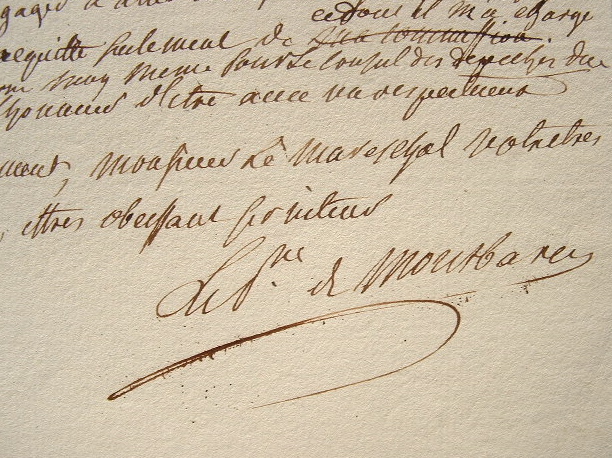 ce dont il m'a chargé
seulement de sa commission
moy meme pour le Consul des depeches du
l'honneur d'etre avec un respectueux
ment, Monsieur Le Mareschal votre tres
et tres obeissant serviteur
Le P.ce de Montbarey